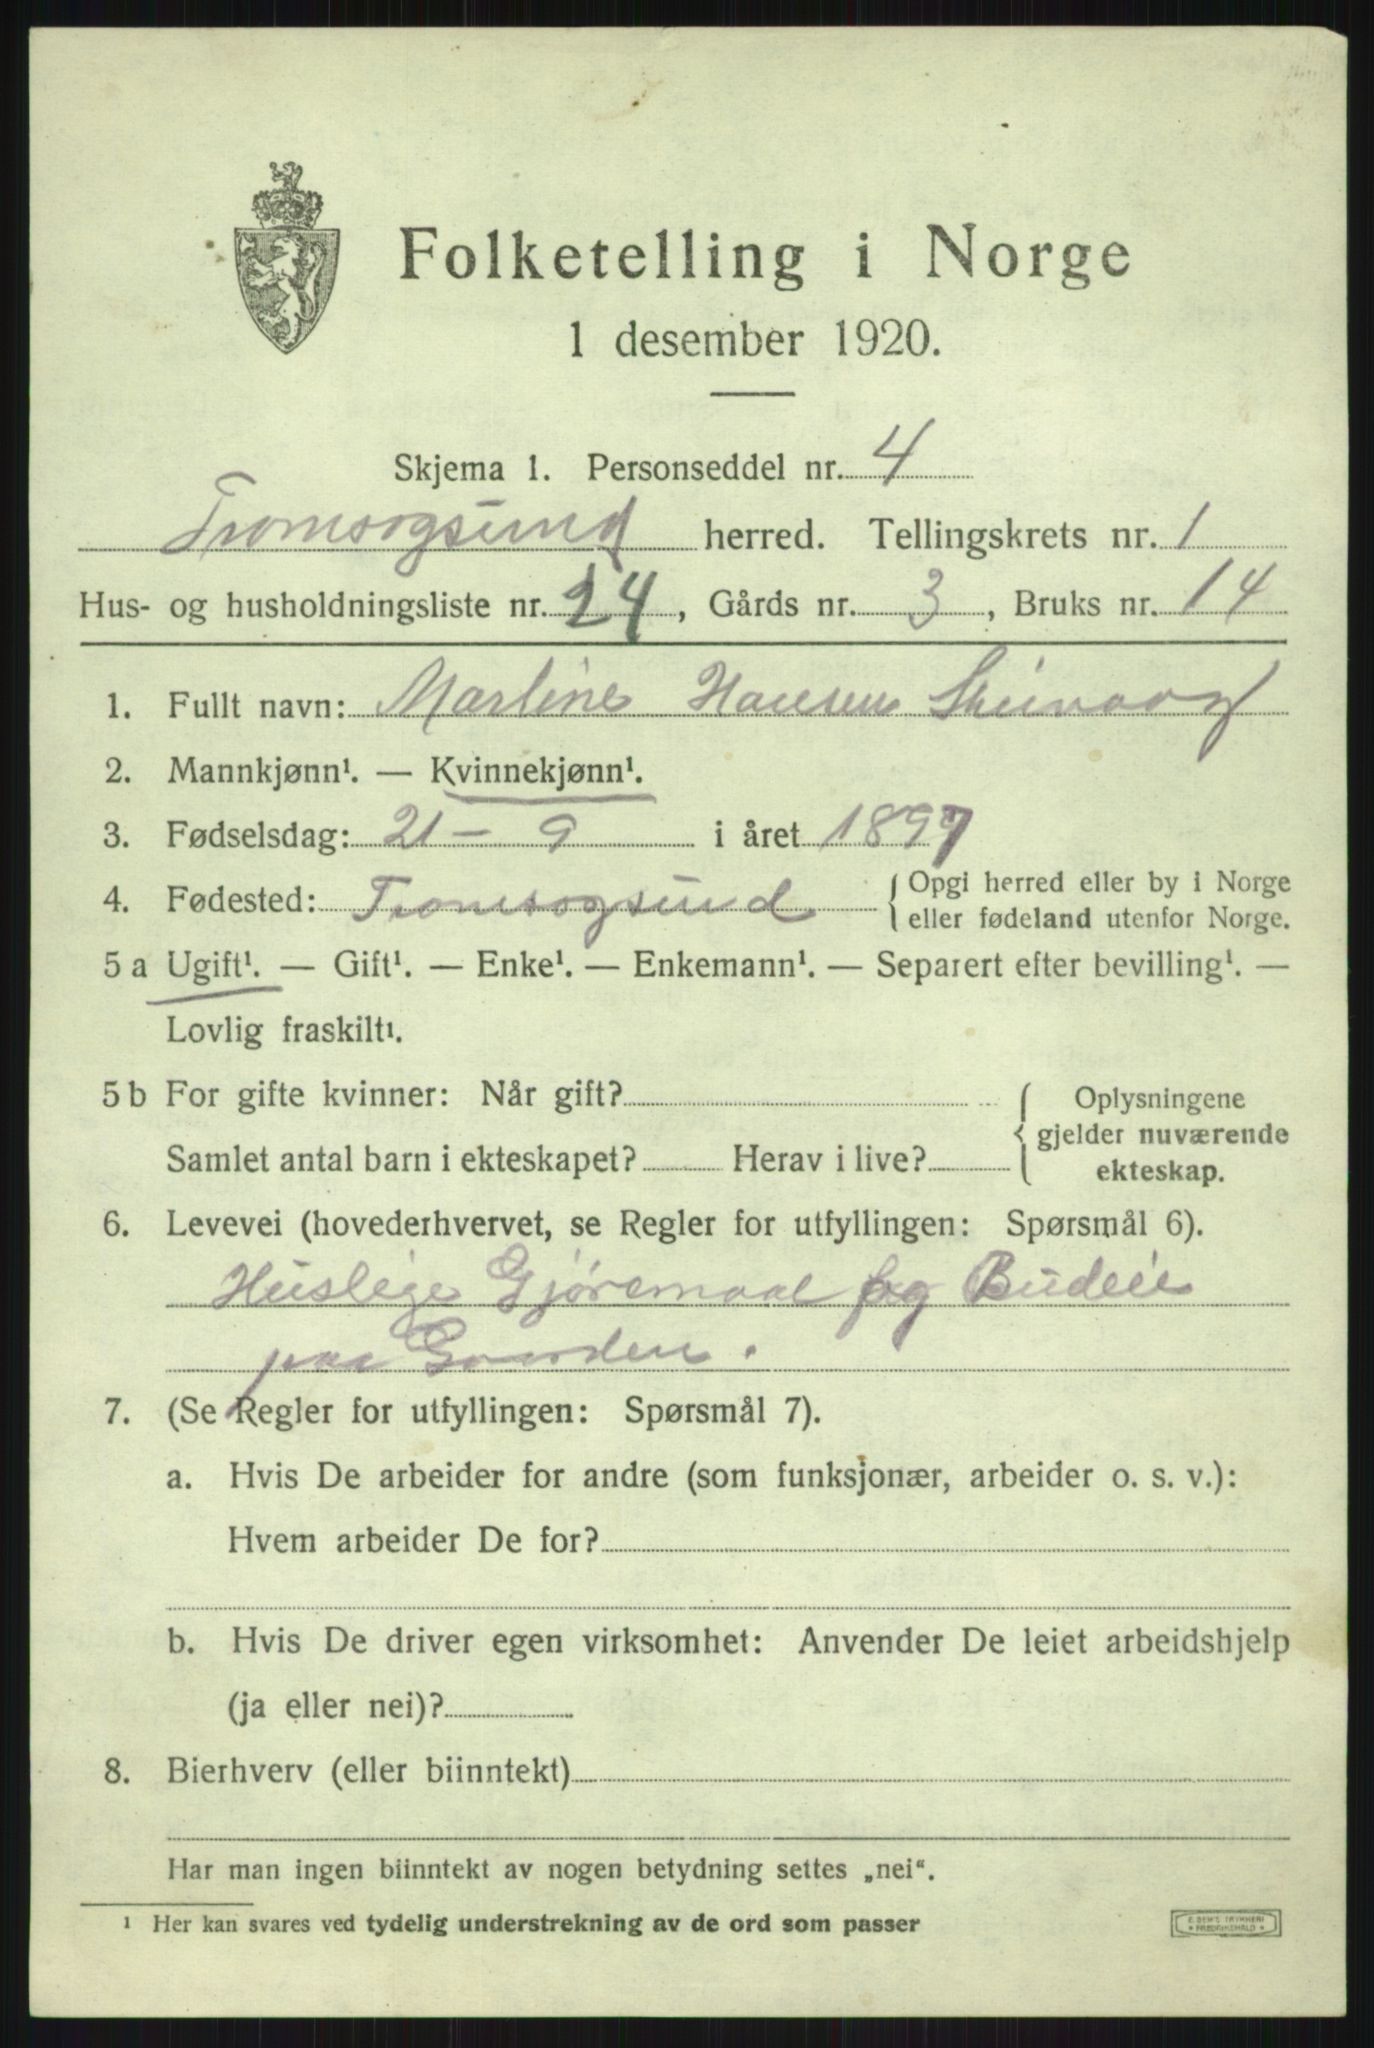 Folketelling i Norge
1 desember 1920.
Skjema 1. Personseddel nr. 4
Tromsøysund herred. Tellingskrets nr. 1
Hus- og husholdningsliste nr. 24, Gårds nr. 3, Bruks nr. 14
1. Fullt navn: Marline Hansen
2. Mannkjønn¹. — Kvinnekjønn¹.
3. Fødselsdag: 21 - 9 i året 1897
4. Fødested: Tromsøysund {Opgi herred eller by i Norge
eller fødeland utenfor Norge.
5 a Ugift¹. — Gift¹. — Enke¹. — Enkemann¹. — Separert efter bevilling¹. —
Lovlig fraskilt¹.
5 b For gifte kvinner: Når gift? { Oplysningene
gjelder nuværende
Samlet antal barn i ekteskapet? Herav i live? ekteskap.
6. Levevei (hovederhvervet, se Regler for utfyllingen: Spørsmål 6).
Huslige Gjøremaal og Budeie
paa Gaarden.
7. (Se Regler for utfyllingen: Spørsmål 7).
a. Hvis De arbeider for andre (som funksjonær, arbeider o. s. v.):
Hvem arbeider De for?
b. Hvis De driver egen virksomhet: Anvender De leiet arbeidshjelp
(ja eller nei)?
8. Bierhverv (eller biinntekt)
Har man ingen biinntekt av nogen betydning settes „nei“.
¹ Her kan svares ved tydelig understrekning av de ord som passer